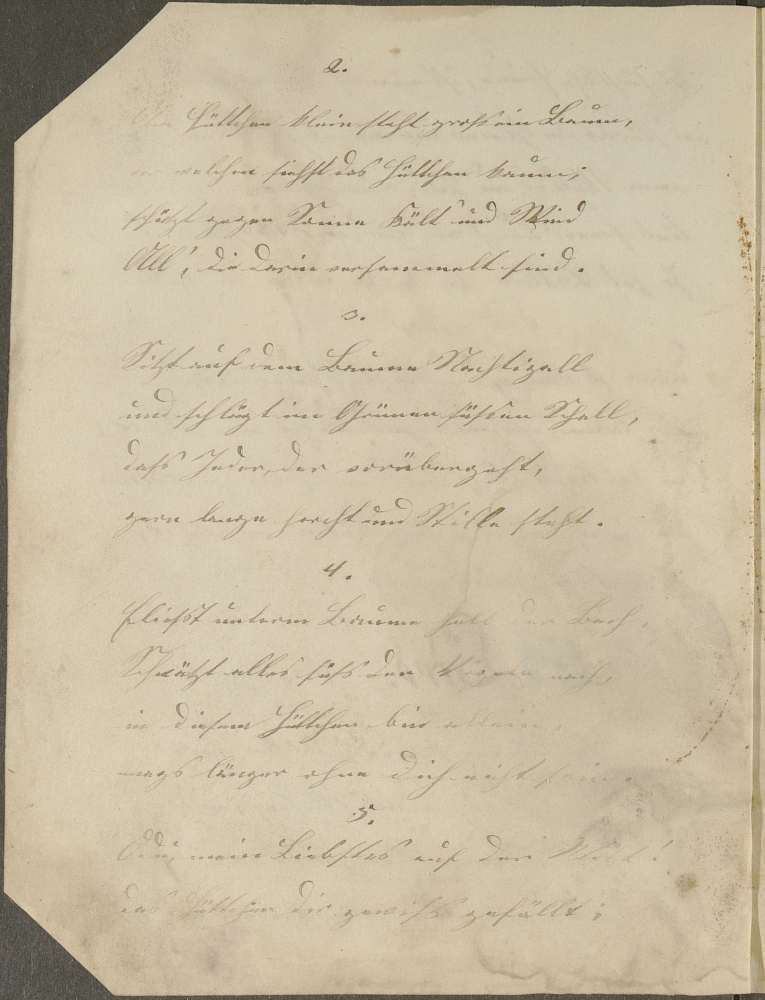 2.
Hüttchen klein steht gross ein Baum,
welchem siehst das Hüttchen kaum;
schützt gegen Sonne Kält' und Wind
All', die darin versammelt sind.
3.
Sitzt auf dem Baume Nachtigall
und schlägt im Grünen süssen Schall,
dass Jeder, der vorübergeht,
gern lange horcht und Stille steht.
4.
Fliesst unterm Baume hell der Bach,
Schwätzt alles süss den Vögeln nach,
in diesem Hüttchen bin allein,
mags länger ohne Dich nicht sein.
5.
O du, mein Liebstes auf der Welt!
das Hüttchen dir gewiss gefällt;